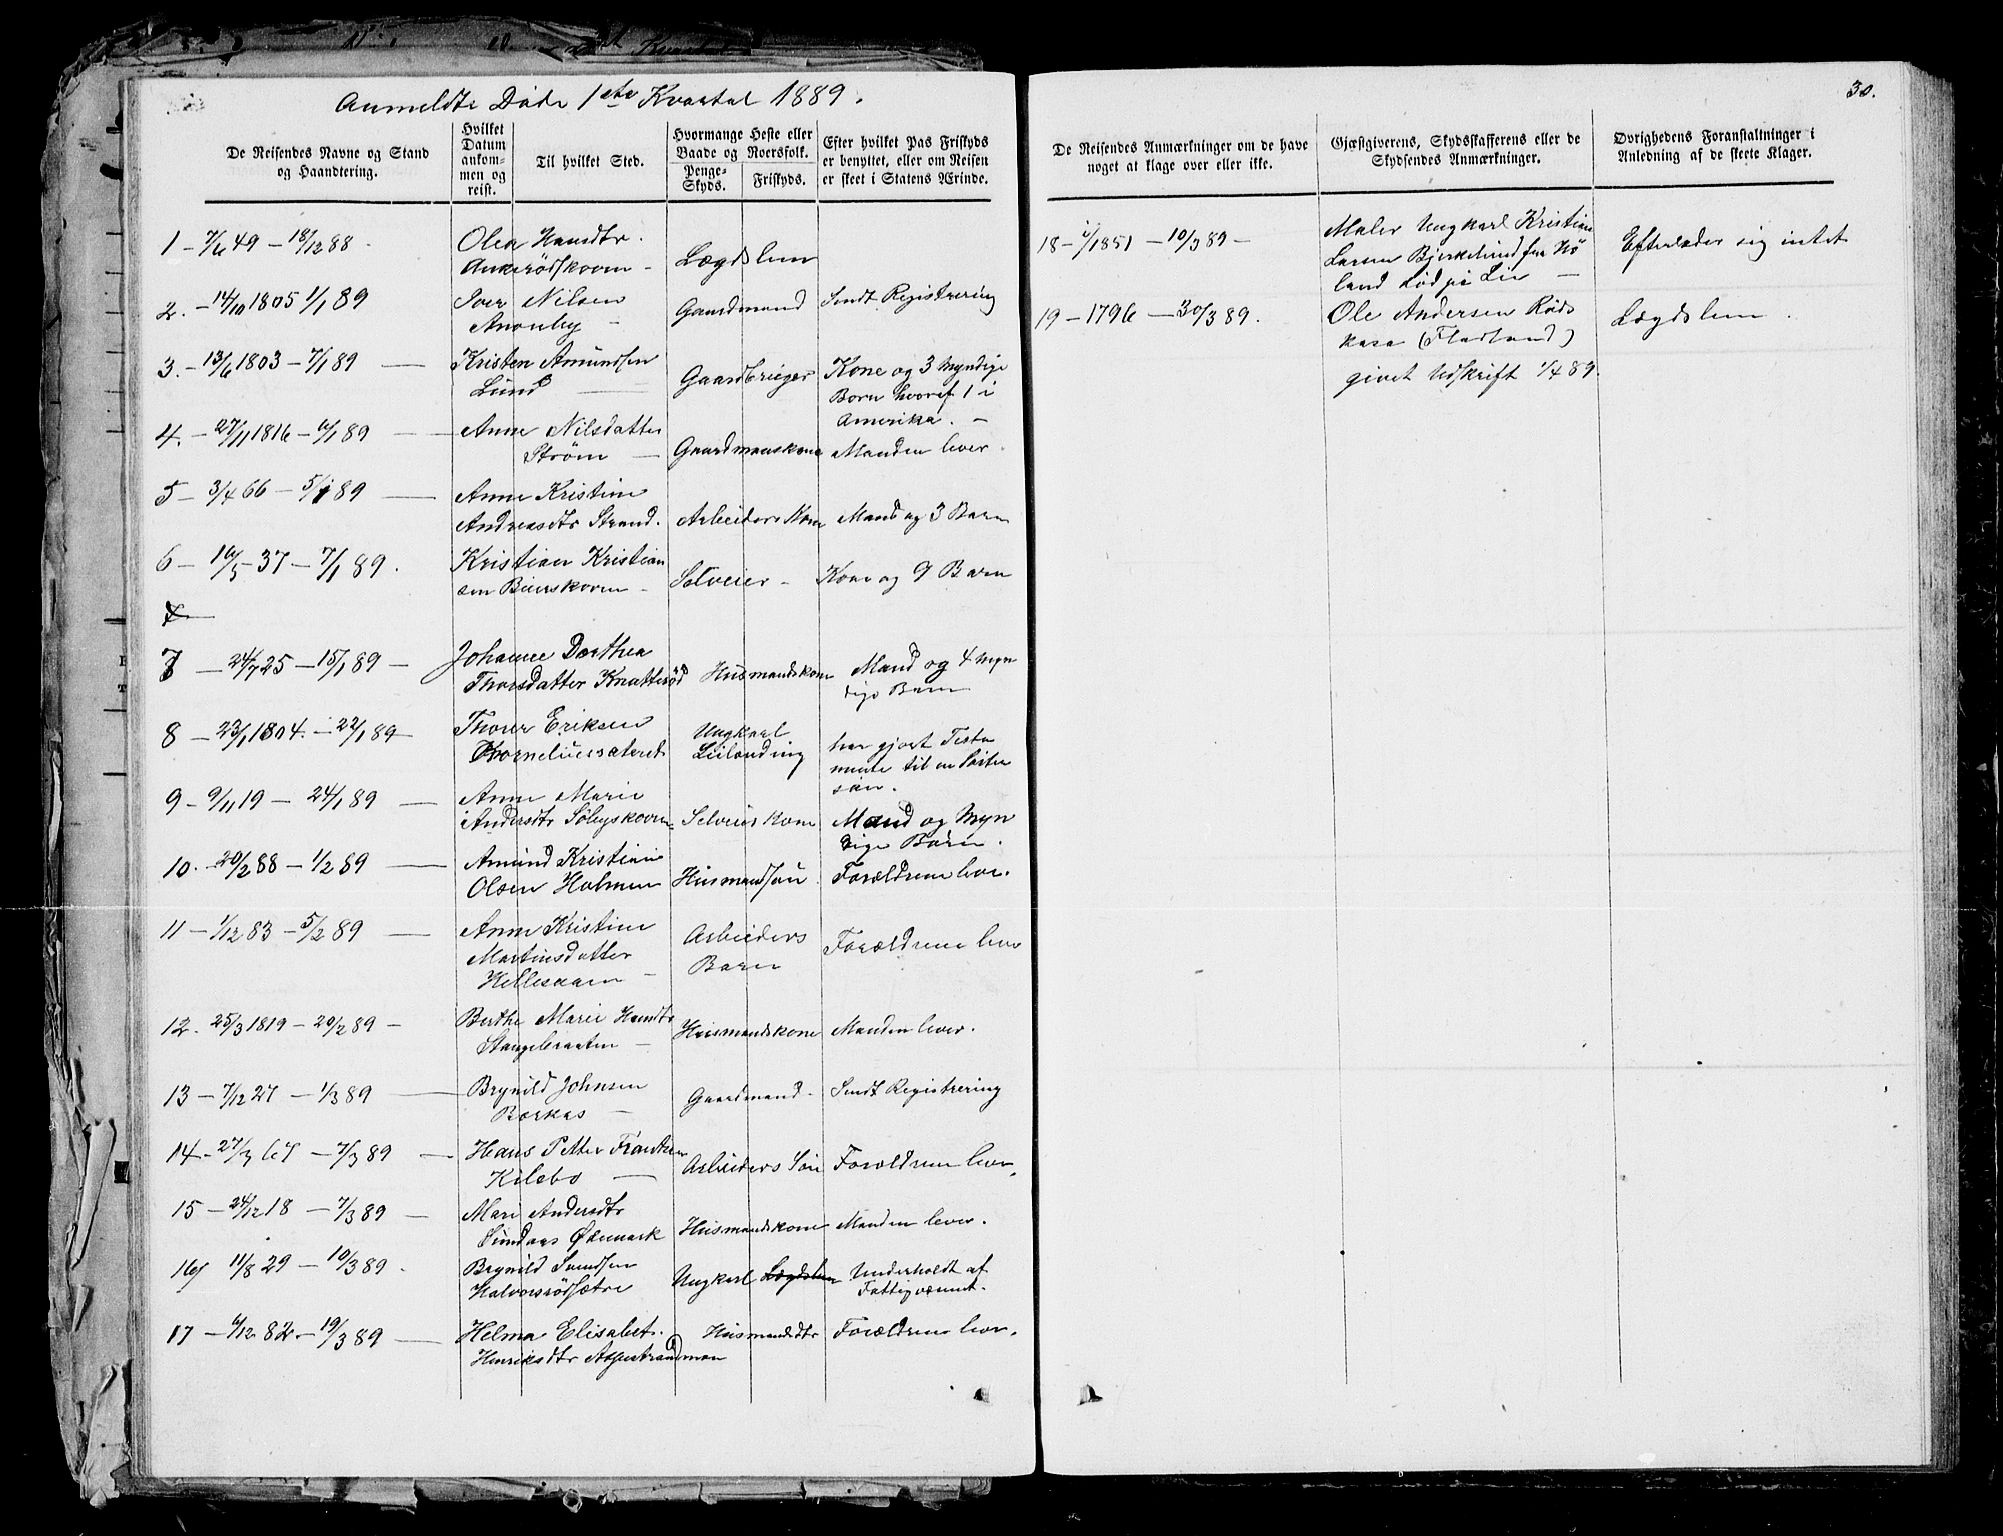 Anmeldte Døde 1ste Kvartal 1889.
De Reisendes Navne og Stand og Haandtering.
Hvilket Datum ankommen og reist.
Til hvilket Sted.
Hvormange Heste eller Baade og Roersfolk.
Penge-Skyds.
Friskyds.
Efter hvilket Pas Friskyds er benyttet, eller om Reisen er skeet i Statens Ærinde.
1 – 7/6 49 – 18/12 88 –
Olea Hansdtr.
Ankerødskoven –
Lægdslem
2. – 14/10 1805 1/1 89
Iver Nilsen
Aaneby –
Gaardmand
Sendt Registrering
3. – 13/6 1803 – 7/1 89 —
Kristen Amundsen
Lund —
Gaardbruger
Kone og 3 Myndige
Børn hvoraf 1 i
Amerika. –
4. – 27/11 1816 – 6/1 89 —
Anne Nilsdatter
Strøm —
Gaardmanskone
Manden lever.
5 – 3/4 66 – 5/1 89 —
Anne Kristine
Andreasdtr Strand.
Arbeiders Kone
Mand og 3 Børn
6 – 16/5 37 – 7/1 89.
Kristian Kristian
sen Buerskoven –
Selveier –
Kone og 9 Børn
7 – 24/7 25 – 15/1 89 –
Johanne Dorthea
Thorsdatter Knatterød
Husmandskone
Mand og 4 Myn
dige Børn
8 – 23/1 1804. – 22/1 89 –
Thorer Eriksen
Korneliussæteret
Ungkarl
Leilending
har gjort Testa
mente til en Søster
søn.
9 – 9/11 19 – 24/1 89 —
Anne Marie
Andersdtr Søbyskoven
Selveier Kone
Mand og Myn
dige Børn.
10. – 20/2 88 – 1/2 89 —
Amund Kristian
Olsen Holmen
Husmandsøn
Forældrene lever.
11 – 1/12 83 – 5/2 89 —
Anne Kristine
Martinsdatter
Hellesaaen –
Arbeiders
Barn
Forældrene lever
12. 25/3 1819 – 20/2 89 –
Berthe Marie Hansdtr
Stangebraaten –
Husmandskone
Manden lever.
13 – 7/12 27 – 1/3 89 —
Brynild Johnsen
Børkas –
Gaardmand –
Sendt Registrering
14 – 27/3 67 – 7/3 89 —
Hans Petter Frantsen
Kilebo —
Arbeiders Søn
Forældrene lever.
15 – 24/12 18 – 7/3 89 –
Mari Andersdtr
Sundaas Ødemark
Husmandskone
Manden lever.
16 11/8 29 – 10/3 89 .
Brynild Svendsen
Halvorsrødsætre
Ungkarl Lægdslem
Underholdt af
Fattigvæsenet.
17 – 6/12 82. – 19/3 89 —
Helma Elisabet.
Henriksdtr
Husmandsdtr
Forældrene lever.
30.
De Reisendes Anmærkninger om de have noget at klage over eller ikke.
Gjæstgiverens, Skydsskafferens eller de Skydsendes Anmærkninger.
Øvrighedens Foranstaltninger i Anledning af de skeete Klager.
18 – 6/1 1851 – 10/3 89 –
Maler Ungkarl Kristian
Larsen Bjerkelund fra Hø
land død på Lie —
Efterlader sig intet
19 – 1796 – 30/3 89.
Ole Andersen Røds
kasa (Fladland)
Lægdslem .
givet Udskrift 1/4 89.